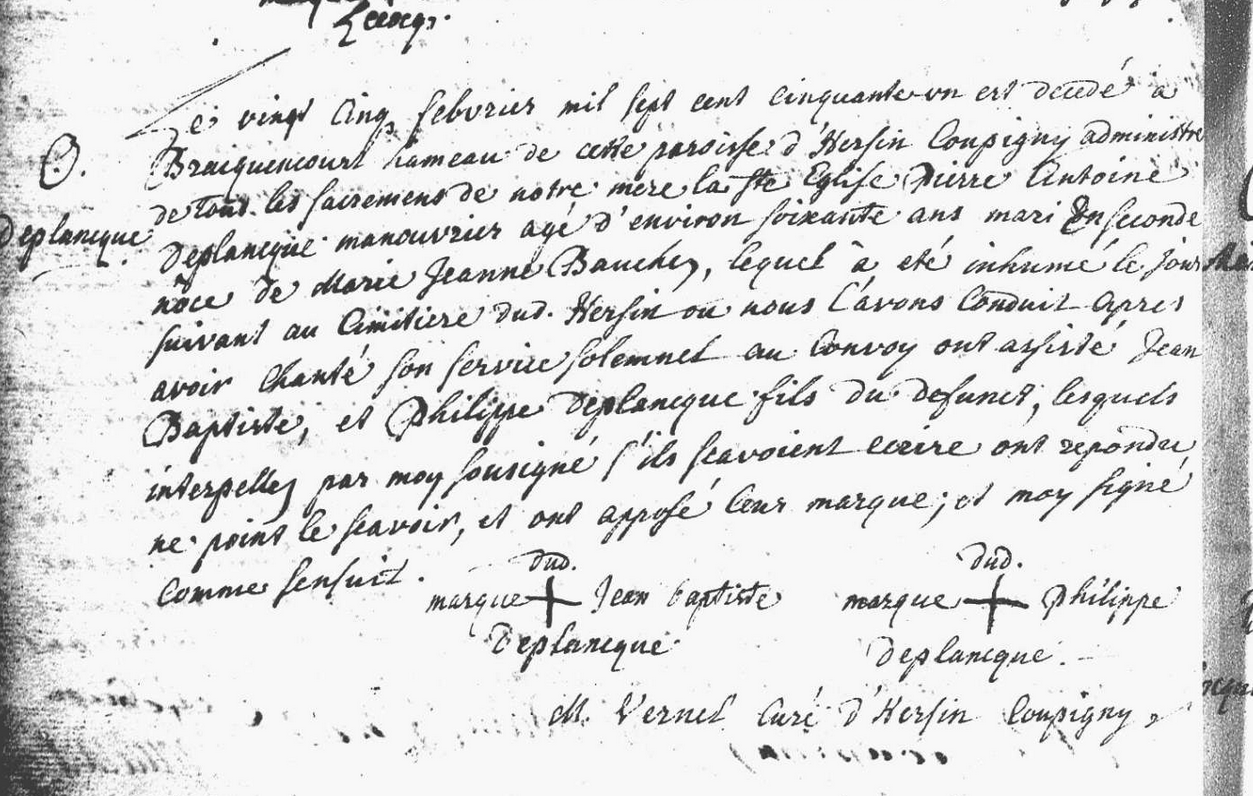 Lecocq.
Le vingt cinq febvrier mil sept cent cinquante un est decedé à
O. Braiquencourt hameau de cette paroisse d'Hersin Coupigny administre
de tous les sacremens de notre mere la ste Eglise Pierre Antoine
Deplancque Deplancque manouvrier agé d'environ soixante ans mari En seconde
nôce de Marie Jeanne Bauchez, lequel à eté inhumé le jour
suivant au Cimitiere dud. Hersin ou nous l'avons Conduit apres
avoir Chanté son service solemnel au Convoy ont assisté Jean
Baptiste, et Philippe Deplancque fils du defunct, lesquels
interpellez par moy sousigné s'ils scavoient ecrire ont repondu
ne point le scavoir, et ont apposé leur marque; et moy signé
Comme sensuit.
dud. dud.
marque Jean baptiste marque Philippe
Deplancque deplancque.
M. Vernel Curé d'Hersin Coupigny